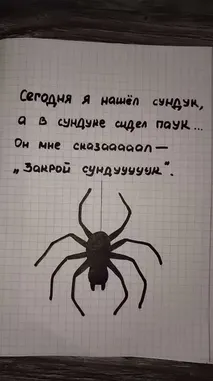 Сегодня я нашёл сундук,
а в сундуке сидел паук...
Он мне сказаааал —
„Закрой сундуууууук".